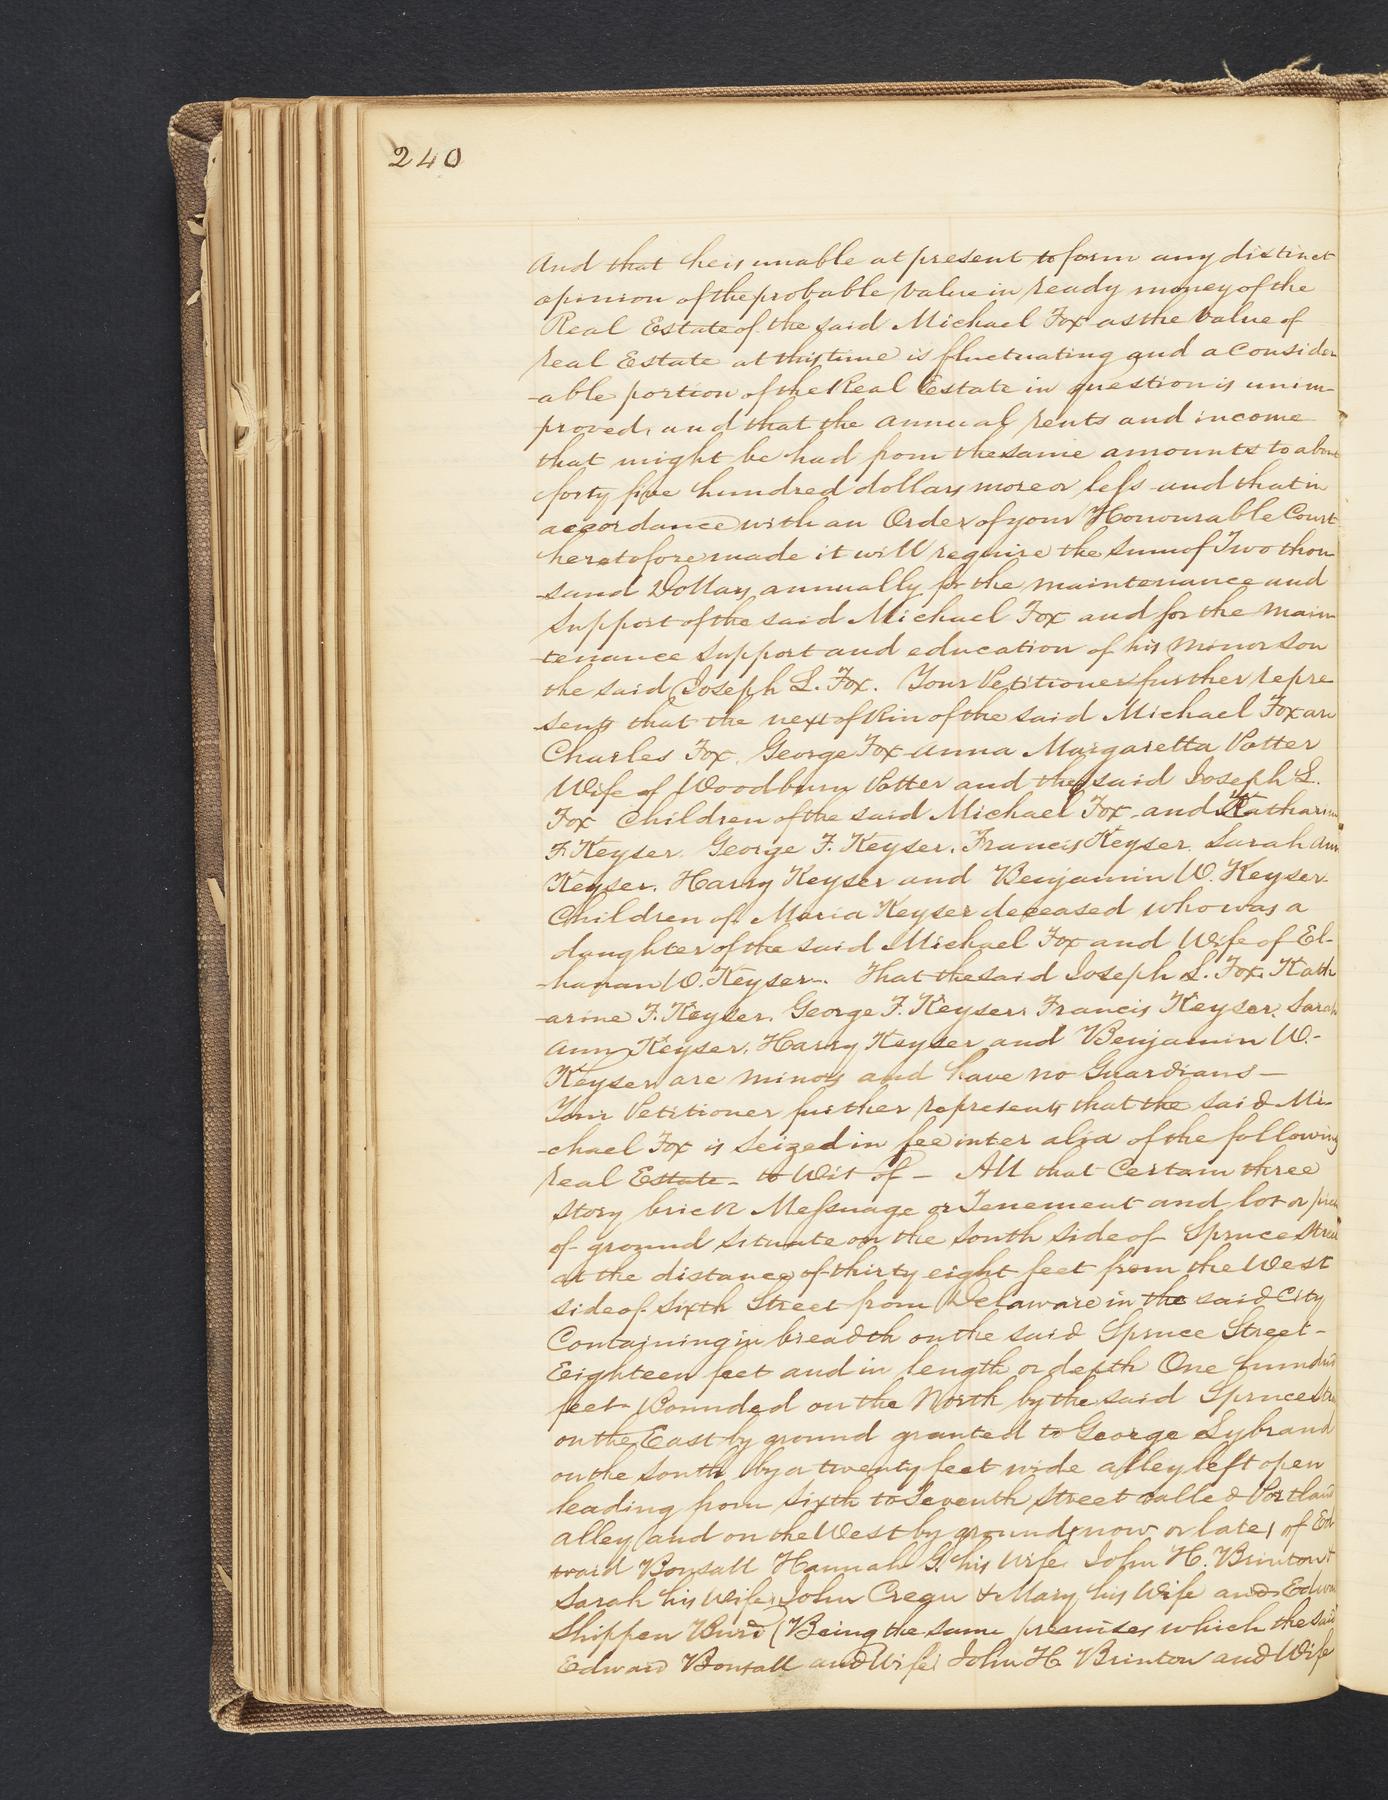 240
And that he is unable at present to form any distinct
opinion of the probable value in ready money of the
Real Estate of the said Michael Fox as the value of
real Estate at this time is fluctuating and a consider
-able portion of the Real Estate in question is unim-
proved, and that the annual rents and income
that might be had from the same amounts to about
forty five hundred dollars more or less and that in
accordance with an Order of your Honourable Court
heretofore made it will require the sum of Two thou
-sand Dollars annually for the maintenance and
support of the said Michael Fox and for the main
-tenance support and education of his minor son
the said Joseph L. Fox. Your Petitioner further repre
-sents that the next of Kin of the said Michael Fox are
Charles Fox, George Fox Anna Margaretta Potter
Wife of Woodburn Potter and the said Joseph L.
Fox Children of the said Michael Fox and Katharine
F. Keyser, George F. Keyser, Francis Keyser, Sarah Ann
Keyser, Harry Keyser and Benjamin W. Keyser
Children of Maria Keyser deceased who was a
daughter of the said Michael Fox and Wife of El-
-hanan W. Keyser. That the said Joseph L. Fox, Kath
-arine F. Keyser, George F. Keyser, Francis Keyser, Sarah
Ann Keyser, Harry Keyser and Benjamin W.
Keyser are minors and have no Guardians —
Your Petitioner further represents that the said Mi-
-chael Fox is seized in fee inter alia of the following
real Estate - to Wit of - All that Certain three
story brick Messuage or Tenement and lot or piece
of ground situate on the South side of Spruce Street
at the distance of thirty eight feet from the West
side of Sixth Street from Delaware in the said City
Containing in breadth on the said Spruce Street -
Eighteen feet and in length or depth One hundred
feet Bounded on the North by the said Spruce Street
on the East by ground granted to George Sybrand
on the South by a twenty feet wide alley left open
leading from Sixth to Seventh Street called Portland
alley and on the West by ground now or late, of Ed-
ward Bonsall Hannah G. his Wife, John H. Brinton &
Sarah his Wife, John & Mary his Wife and Edward
Shippen Burd (Being the same premises which the said
Edward Bonsall and Wife, John H. Brinton and Wife